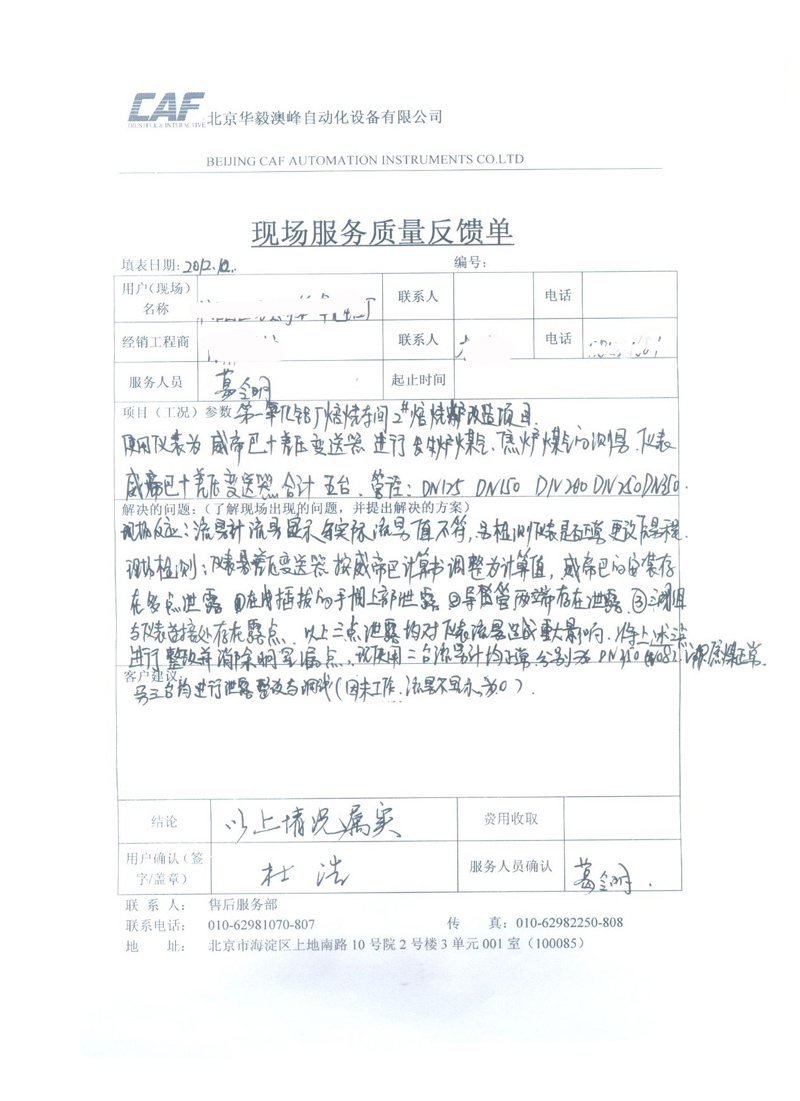 CAF 北京华毅澳峰自动化设备有限公司
TRUSTFUL & INTERACTIVE
BEIJING CAF AUTOMATION INSTRUMENTS CO.LTD
现场服务质量反馈单
填表日期: 2012.12. 编号:
用户(现场)名称 联系人 电话
经销工程商 联系人 电话
服务人员 葛金明 起止时间
项目（工况）参数 第一氧化铝厂焙烧车间2#焙烧炉改造项目.
使用仪表为 威帝巴十差压变送器 进行 炉煤气、焦炉煤气的测量.仪表
威帝巴十差压变送器 合计 五台. 管径: DN125 DN150 DN200 DN250 DN350.
解决的问题:（了解现场出现的问题，并提出解决的方案）
现场反应: 流量计流量显示与实际流量值不符, 检测仪表是否正常更改量程.
现场检测: 仪表差压变送器 按威帝巴计算书调整为计算值, 威帝巴的安装存
在多点泄露 插拔的手柄上部泄露 ②导管两端存在泄露. ③三阀组
与仪表连接处存在露点. 以上三点泄露均对仪表流量造成重大影响. 将上述三点
进行整改并消除明显漏点. 现使用二台流量计均正常. 分别为
客户建议:
另三台均进行泄露整改与调试(因未工作.流量不显示.为0).
结论 以上情况属实 费用收取
用户确认（签字/盖章） 杜浩 服务人员确认 葛金明.
联 系 人: 售后服务部
联系电话: 010-62981070-807 传 真: 010-62982250-808
地 址: 北京市海淀区上地南路 10 号院 2 号楼 3 单元 001 室（100085）